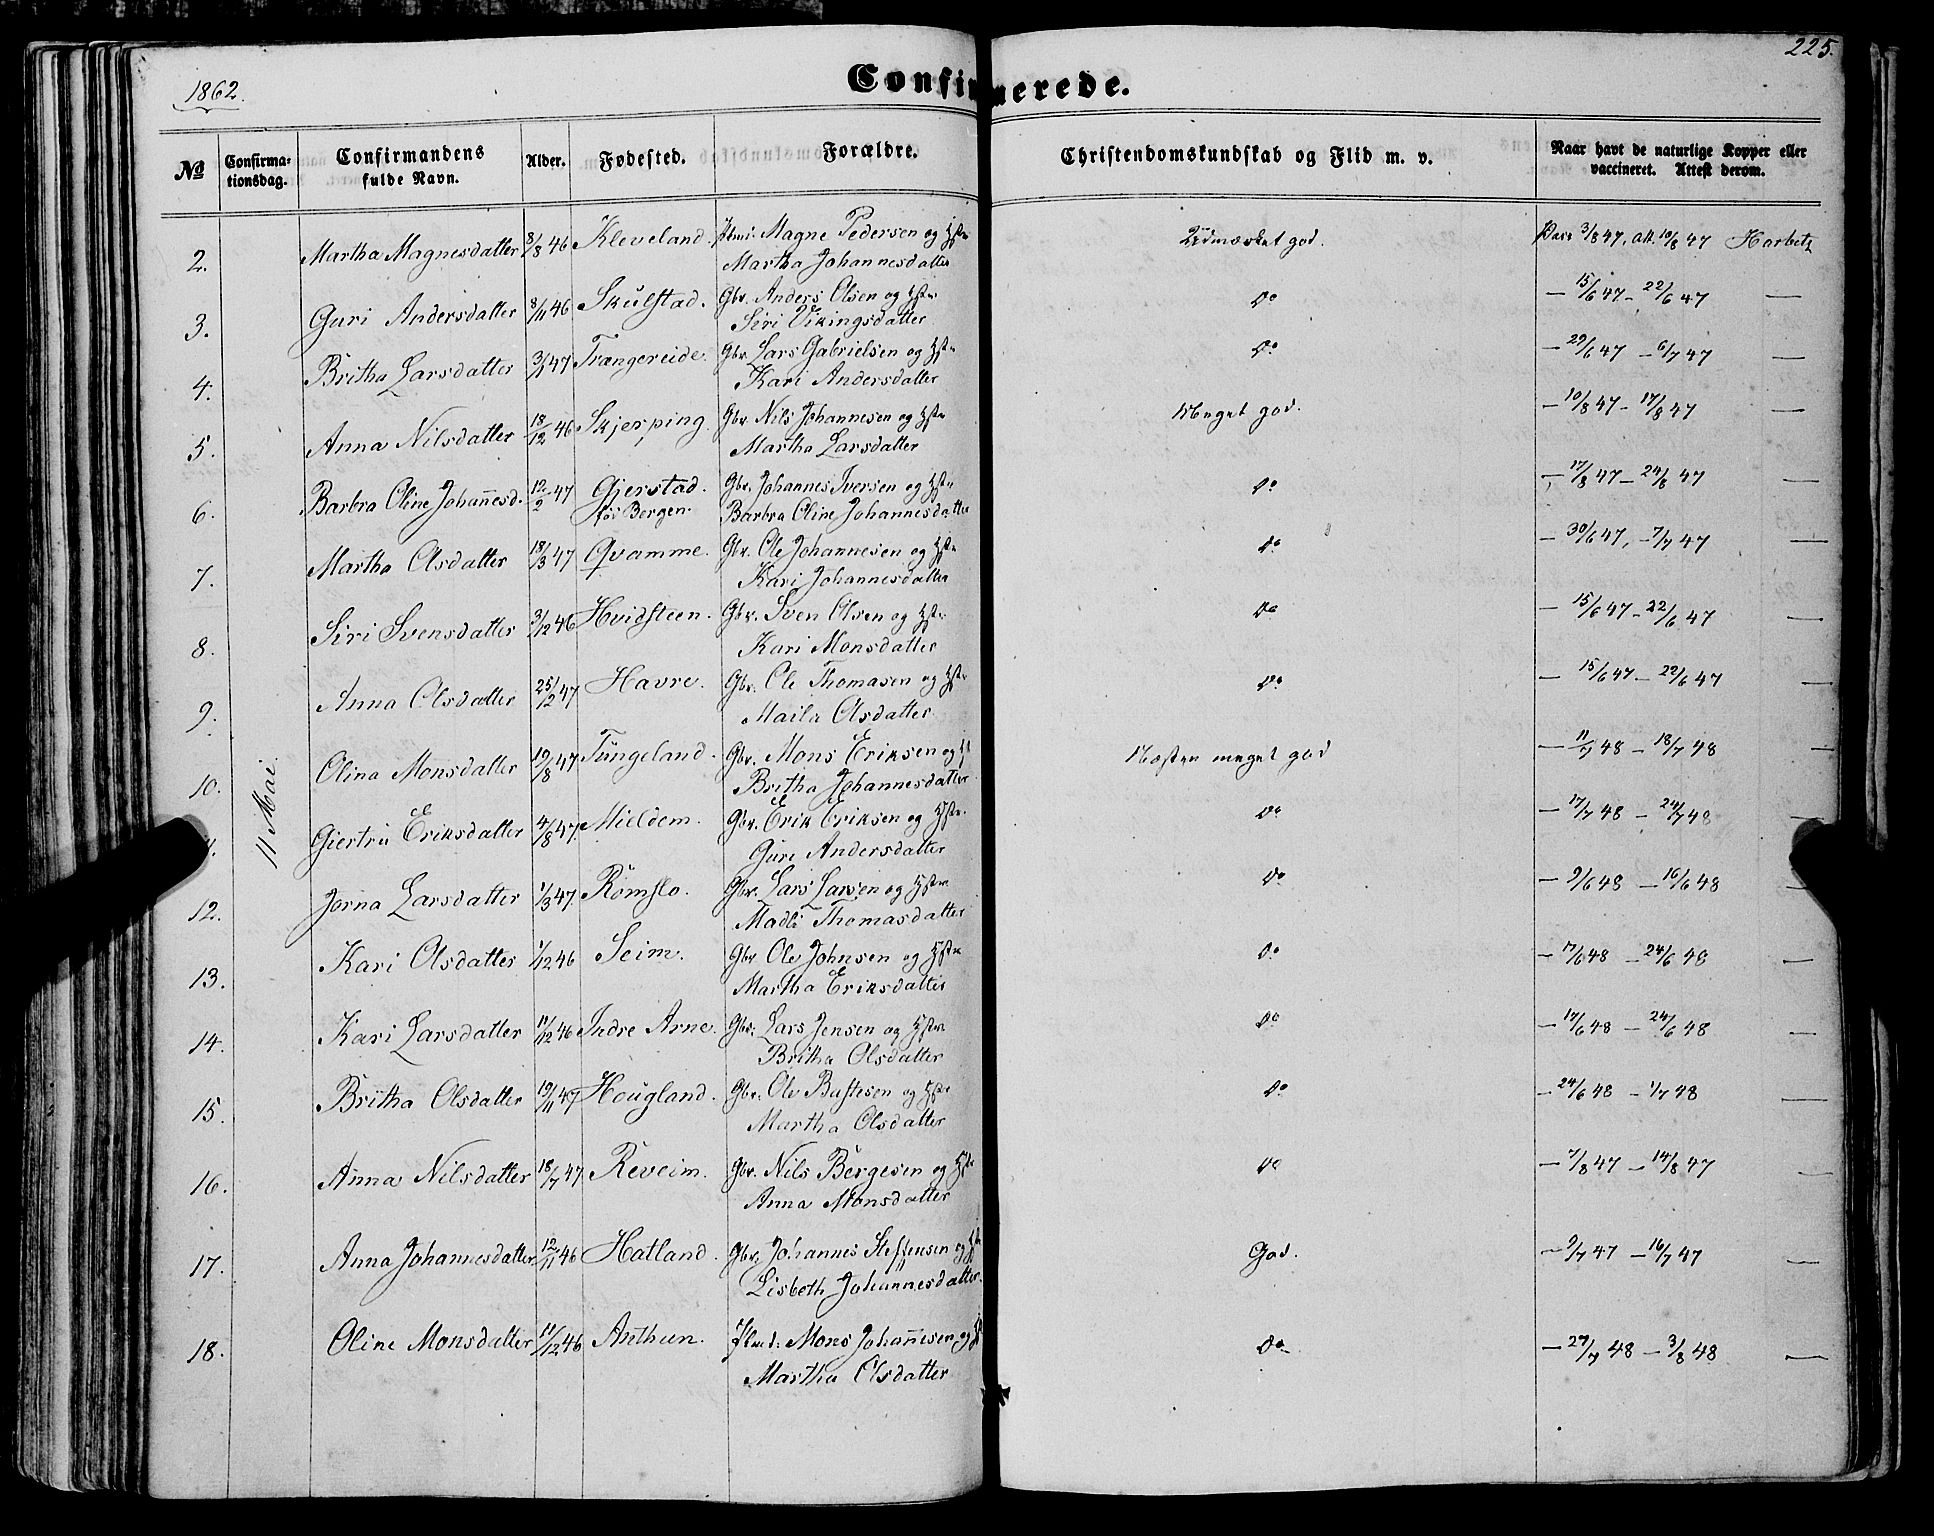 1862.
Confirmerede.
225.
№
Confirma-
tionsdag.
Confirmandens
fulde Navn.
Alder.
Fødested.
Forældre.
Christendomskundskab og Flid m. v.
Naar havt de naturlige Kopper eller
vaccineret. Attest derom.
11 Mai.
2. Martha Magnesdatter 8/8 46 Kleveland. Magne Pedersen og Hstr Udmærket god. Vacc 3/8 47, att. 10/8 47 Harbitz
Martha Johannesdatter
3. Guri Andersdatter 8/11 46 Skulstad. Gbr. Anders Olsen og Hstr Do — 15/6 47 – 22/6 47 —
Siri Vikingsdatter
4. Britha Larsdatter 3/1 47 Trængereide. Gbr. Lars Gabrielsen og Hstr Do — 29/6 47 – 6/7 47 —
Kari Andersdatter
5. Anna Nilsdatter 18/12 46 Skjerping. Gbr. Nils Johannesen og Hstr Meget god. — 10/8 47 – 17/8 47 —
Martha Larsdatter
6. Barbra Oline Johannesd. 12/2 47 Gjerstad. Gbr. Johannes Iversen og Hstr Do — 17/8 47 – 24/8 47 —
fød Bergen. Barbra Oline Johannesdatter
7. Martha Olsdatter 18/3 47 Qvamme. Gbr. Ole Johannesen og Hstr Do — 30/6 47, – 7/7 47 —
Kari Johannesdatter
8. Siri Svensdatter 3/12 46 Hvidsteen. Gbr. Sven Olsen og Hstr Do — 15/6 47 – 22/6 47 —
Kari Monsdatter
9. Anna Olsdatter 25/2 47 Havre. Gbr. Ole Thomasen og Hstr Do — 15/6 47 – 22/6 47 —
Maila Olsdatter
10. Olina Monsdatter 19/8 47 Tüngeland. Gbr. Mons Eriksen og Næsten meget god — 11/7 48 – 18/7 48 —
Britha Johannesdatter
Giertrü Eriksdatter 4/8 47. Mieldem. Gbr. Erik Eriksen og Hstr. Do — 17/7 48 – 24/7 48 —
Guri Andersdatter
12. Jorna Larsdatter 1/3 47. Romslo. Gbr. Lars Larsen og Hstr Do — 9/6 48 – 16/6 48 —
Madli Thomasdatter
13. Kari Olsdatter 1/12 46 Seim. Gbr Ole Johnsen og Hstr Do — 17/6 48 – 24/6 48 —
Martha Eriksdatter
14. Kari Larsdatter 11/12 46 Indre Arne. Gbr. Lars Jensen og Hstr Do — 17/6 48 – 24/6 48 —
Britha Olsdatter
15. Britha Olsdatter 19/11 47 Hougland. Gbr. Ole Bustesen og Hstr Do — 24/6 48 – 1/7 48 —
Martha Olsdatter
16. Anna Nilsdatter 18/7 47 Reveim. Gbr. Nils Børgesen og Hstr Do — 7/8 47 – 14/8 47 —
Anna Monsdatter
17. Anna Johannesdatter 12/11 46 Hatland. Gbr. Johannes Steffensen og Hstr God. — 9/7 47 – 16/7 47 —
Lisbeth Johannesdatter.
18. Oline Monsdatter 11/12 46 Arthun. Mons Johannesen og Do — 27/7 48 – 3/8 48 —
Martha Olsdatter